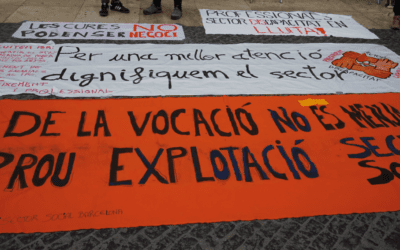 LES CURES NO
PODEN SER NEGOCI
PROFESSIONALS
SECTOR DISCAPACITAT EN
LLUITA!
Per una millor atenció
dignifiquem el sector
PROFESSIONAL
DE LA VOCACIÓ NO ES MER
PROU EXPLOTACIÓ SEC
SO